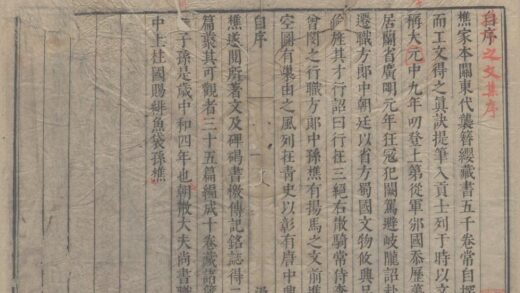 自序之文集序
樵家本關東代襲簪纓藏書五千卷常自探
而工文得之眞訣提筆入貢士列于時以文
稱大元中九年叨登上第從軍邠國忝歷華
居蘭省廣明元年狂冦犯闕駕避岐隴詔赴
遷職方郎中朝廷以省方蜀國文物攸興品
旌其才行詔曰行在三絕右散騎常侍李
曾閔之行職方郎中孫樵有揚馬之文前進
空圖有巢由之風列在青史以彰有唐中興
自序
樵遂閱所著文及碑碣書檄傳記銘誌得二
篇叢其可觀者三十五篇編成十卷藏諸篋
子孫是歲中和四年也朝散大夫尚書職
中上柱國賜緋魚袋孫樵